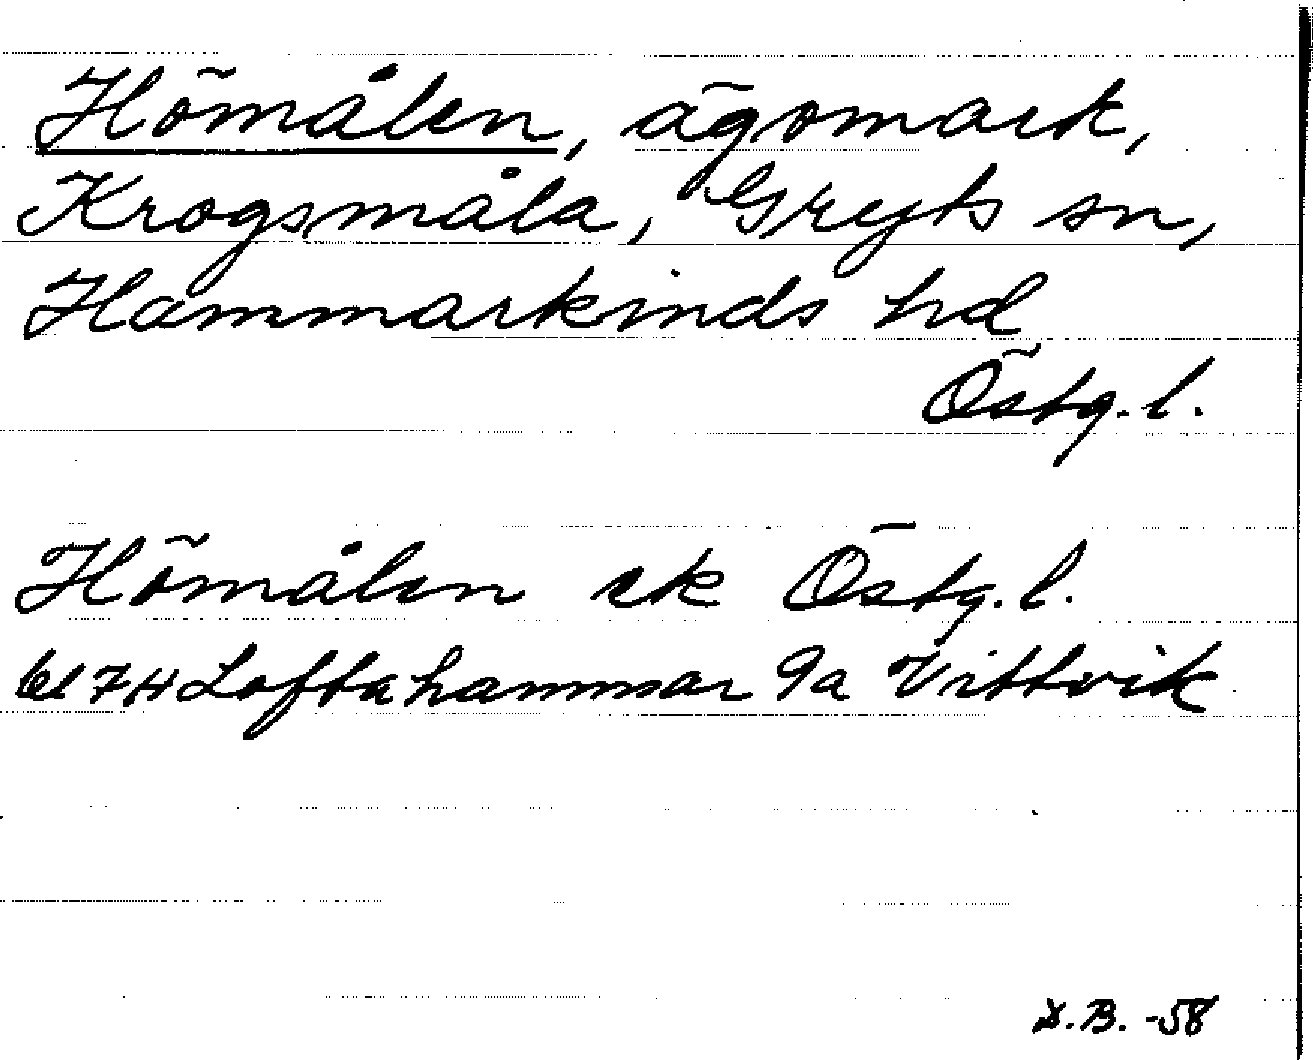 Hömålen, ägomark,
Krogsmåla, Gryts sn,
Hammarkinds hd
Östg. l.
Hömålen ek Östg. l.
6174 Loftahammar 9a Vittvik
B. -58